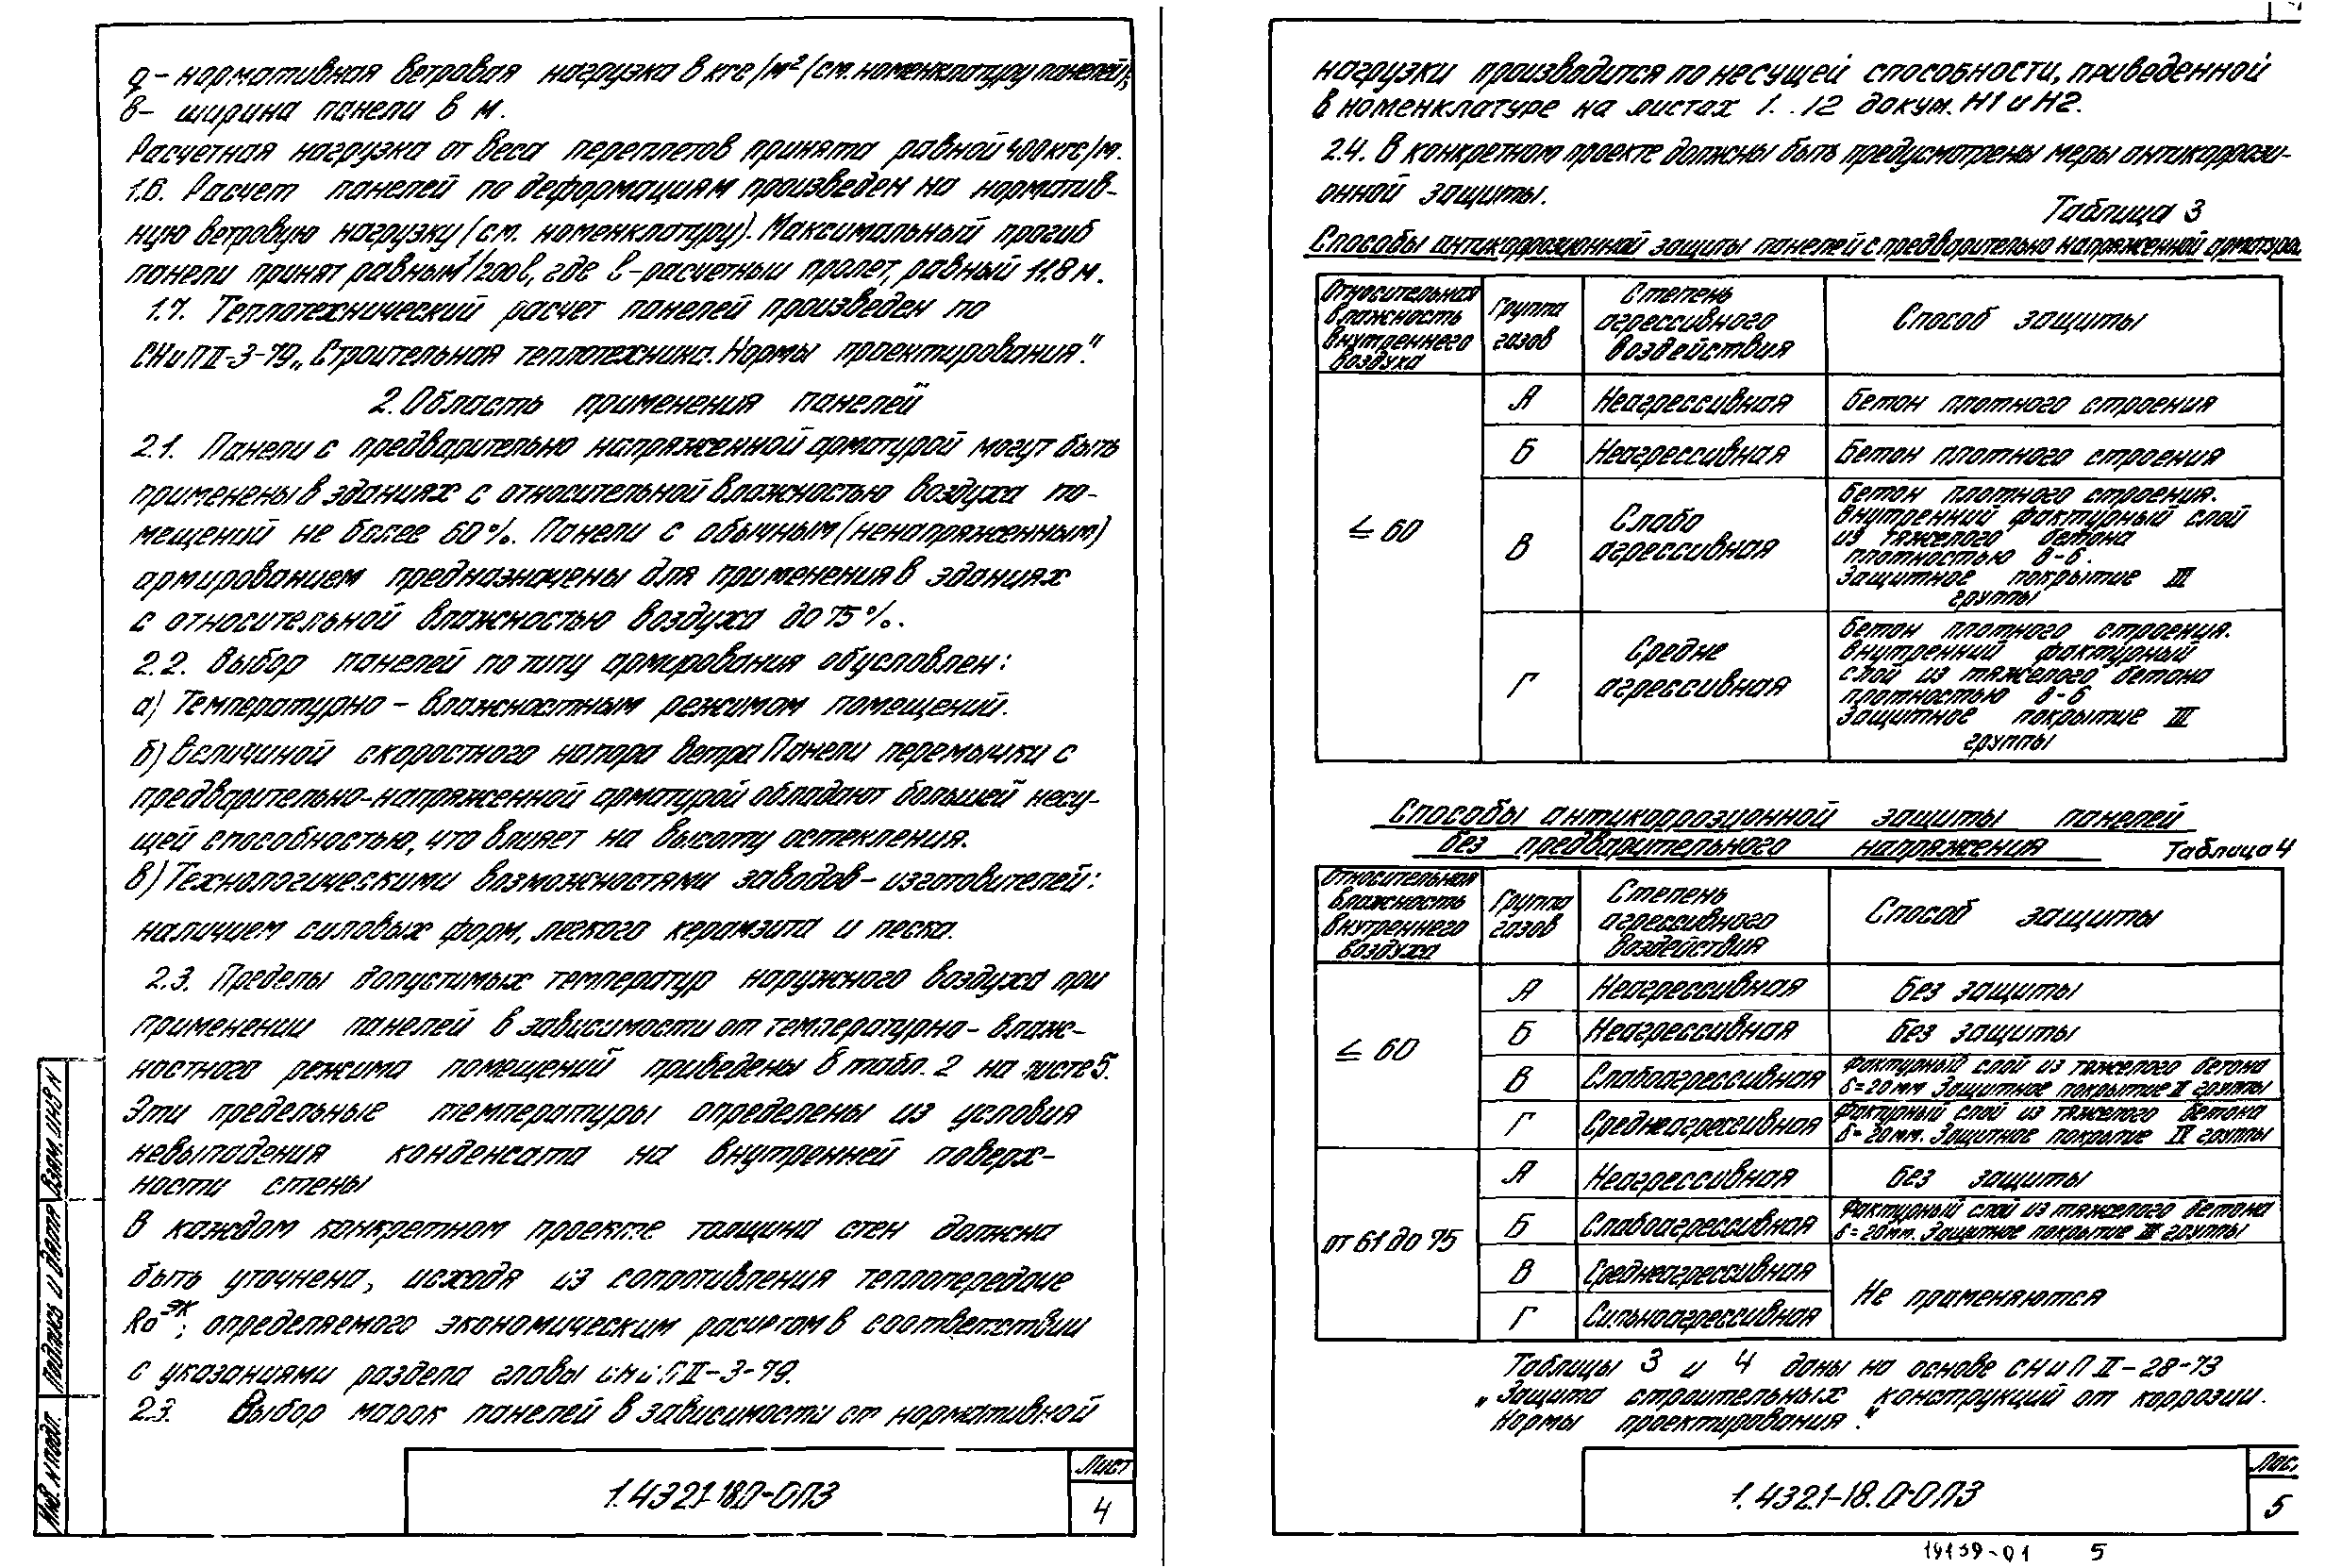 q – нормативная ветровая нагрузка в кгс/м² (см. номенклатуру панелей);
в – ширина панели в м.
Расчетная нагрузка от веса переплетов принята равной 400 кгс/м.
1.6. Расчет панелей по деформациям произведен на норматив-
ную ветровую нагрузку (см. номенклатуру). Максимальный прогиб
панели принят равным 1/200 ℓ, где ℓ – расчетный пролет, равный 11.8 м.
1.7. Теплотехнический расчет панелей произведен по
СНиП II-3-79 „Строительная теплотехника. Нормы проектирования."
2. Область применения панелей
2.1. Панели с предварительно напряженной арматурой могут быть
применены в зданиях с относительной влажностью воздуха по-
мещений не более 60%. Панели с обычным (ненапряженным)
армированием предназначены для применения в зданиях
с относительной влажностью воздуха до 75%.
2.2. Выбор панелей по типу армирования обусловлен:
а) Температурно – влажностным режимом помещений.
б) Величиной скоростного напора ветра Панели перемычки с
предварительно-напряженной арматурой обладают большей несу-
щей способностью, что влияет на высоту остекления.
в) Технологическими возможностями заводов – изготовителей:
наличием силовых форм, легкого керамзита и песка.
2.3. Пределы допустимых температур наружного воздуха при
применении панелей в зависимости от температурно – влаж-
ностного режима помещений приведены в табл. 2 на листе 5.
Эти предельные температуры определены из условия
невыпадения конденсата на внутренней поверх-
ности стены
В каждом конкретном проекте толщина стен должна
быть уточнена, исходя из сопротивления теплопередаче
Rо эк; определяемого экономическим расчетом в соответствии
с указаниями раздела главы СНиП II-3-79.
2.3. Выбор марок панелей в зависимости от нормативной
Взам. инв. N
Подпись и дата
Инв. N подл.
1.432.1-18.0-0ПЗ
Лист
4
нагрузки производится по несущей способности, приведенной
в номенклатуре на листах 1..12 докум. Н1 и Н2.
2.4. В конкретном проекте должны быть предусмотрены меры антикоррози-
онной защиты.
Таблица 3
Способы антикоррозионной защиты панелей с предварительно напряженной
Относительная влажность внутреннего воздуха
Группа газов
Степень агрессивного воздействия
Способ защиты
≤ 60
А
Неагрессивная
Бетон плотного строения
Б
Неагрессивная
Бетон плотного строения
В
Слабо
агрессивная
Бетон плотного строения.
Внутренний фактурный слой
из тяжелого бетона
плотностью В-6.
Защитное покрытие III
группы
Г
Средне
агрессивная
Бетон плотного строения.
Внутренний фактурный
слой из тяжелого бетона
плотностью В-6
Защитное покрытие III
группы
Способы антикоррозионной защиты панелей
без предварительного напряжения
Таблица 4
Относительная влажность внутреннего воздуха
Группа газов
Степень агрессивного воздействия
Способ защиты
≤ 60
А
Неагрессивная
Без защиты
Б
Неагрессивная
Без защиты
В
Слабоагрессивная
Фактурный слой из тяжелого бетона
δ=20мм Защитное покрытие II группы
Г
Среднеагрессивная
Фактурный слой из тяжелого бетона
δ=20мм. Защитное покрытие IV группы
от 61 до 75
А
Неагрессивная
Без защиты
Б
Слабоагрессивная
Фактурный слой из тяжелого бетона
δ=20мм. Защитное покрытие III группы
В
Среднеагрессивная
Г
Сильноагрессивная
Не применяются
Таблицы 3 и 4 даны на основе СНиП II-28-73
„Защита строительных конструкций от коррозии.
Нормы проектирования."
1.432.1-18.0-0ПЗ
Лис.
5
19139-01 5